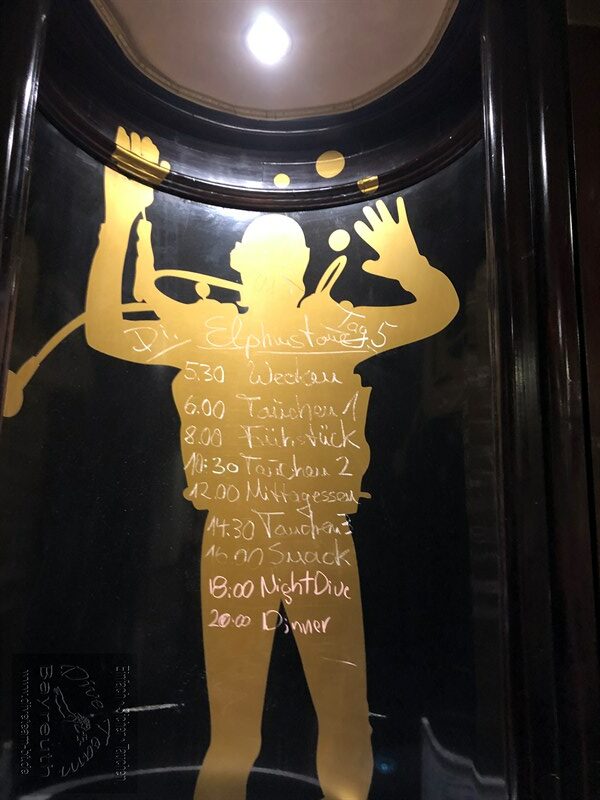 Di. Elphinstone Tag 5
5.30 Wecken
6.00 Tauchen 1
8.00 Frühstück
10:30 Tauchen 2
12.00 Mittagessen
14:30 Tauchen 3
16.00 Snack
18:00 NightDive
20:00 Dinner
Dive Team
Bayreuth